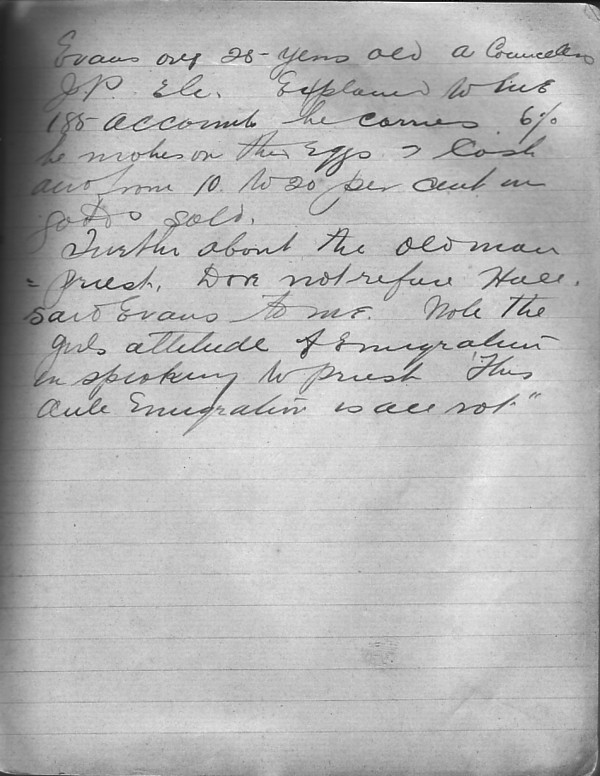 Evans only 28 years old a Councellor
J.P. Etc. Explained to me
185 accounts he carries 6%
he makes on the Eggs & Cash
and from 10. to 20 per cent on
goods sold.
Further about the old man
= priest. Dove not refuse Hall.
Said Evans to me. Note the
girls attitude of Emigration
in speaking to priest 'This
Anti Emigration is all rot"